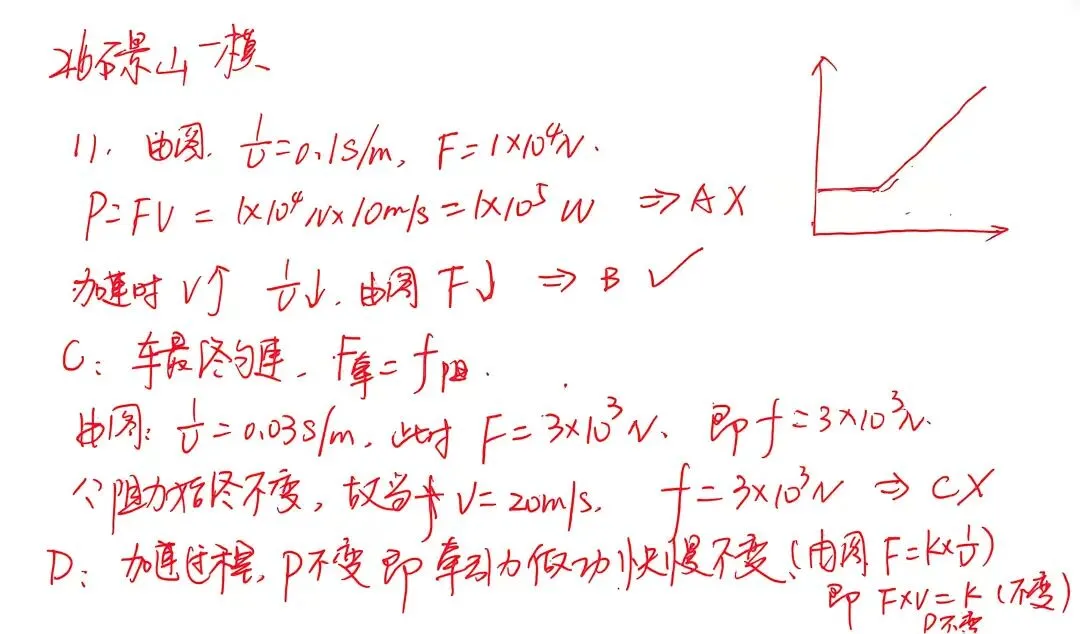 26石景山一模
11. 由图. 1/v=0.1s/m, F=1×10⁴N.
P=FV=1×10⁴N×10m/s=1×10⁵W ⇒A X
加速时 V↑ 1/v↓. 由图 F↓ ⇒ B ✓
C: 车最终匀速. F牵=f阻.
由图: 1/v=0.03s/m, 此时 F=3×10³N. 即 f=3×10³N.
∵阻力始终不变, 故当 V=20m/s. f=3×10³N ⇒ C X
D: 加速过程. P不变 即 牵引力做功快慢不变. (由图 F=K×1/v)
即 F×V=K (不变)
P不变